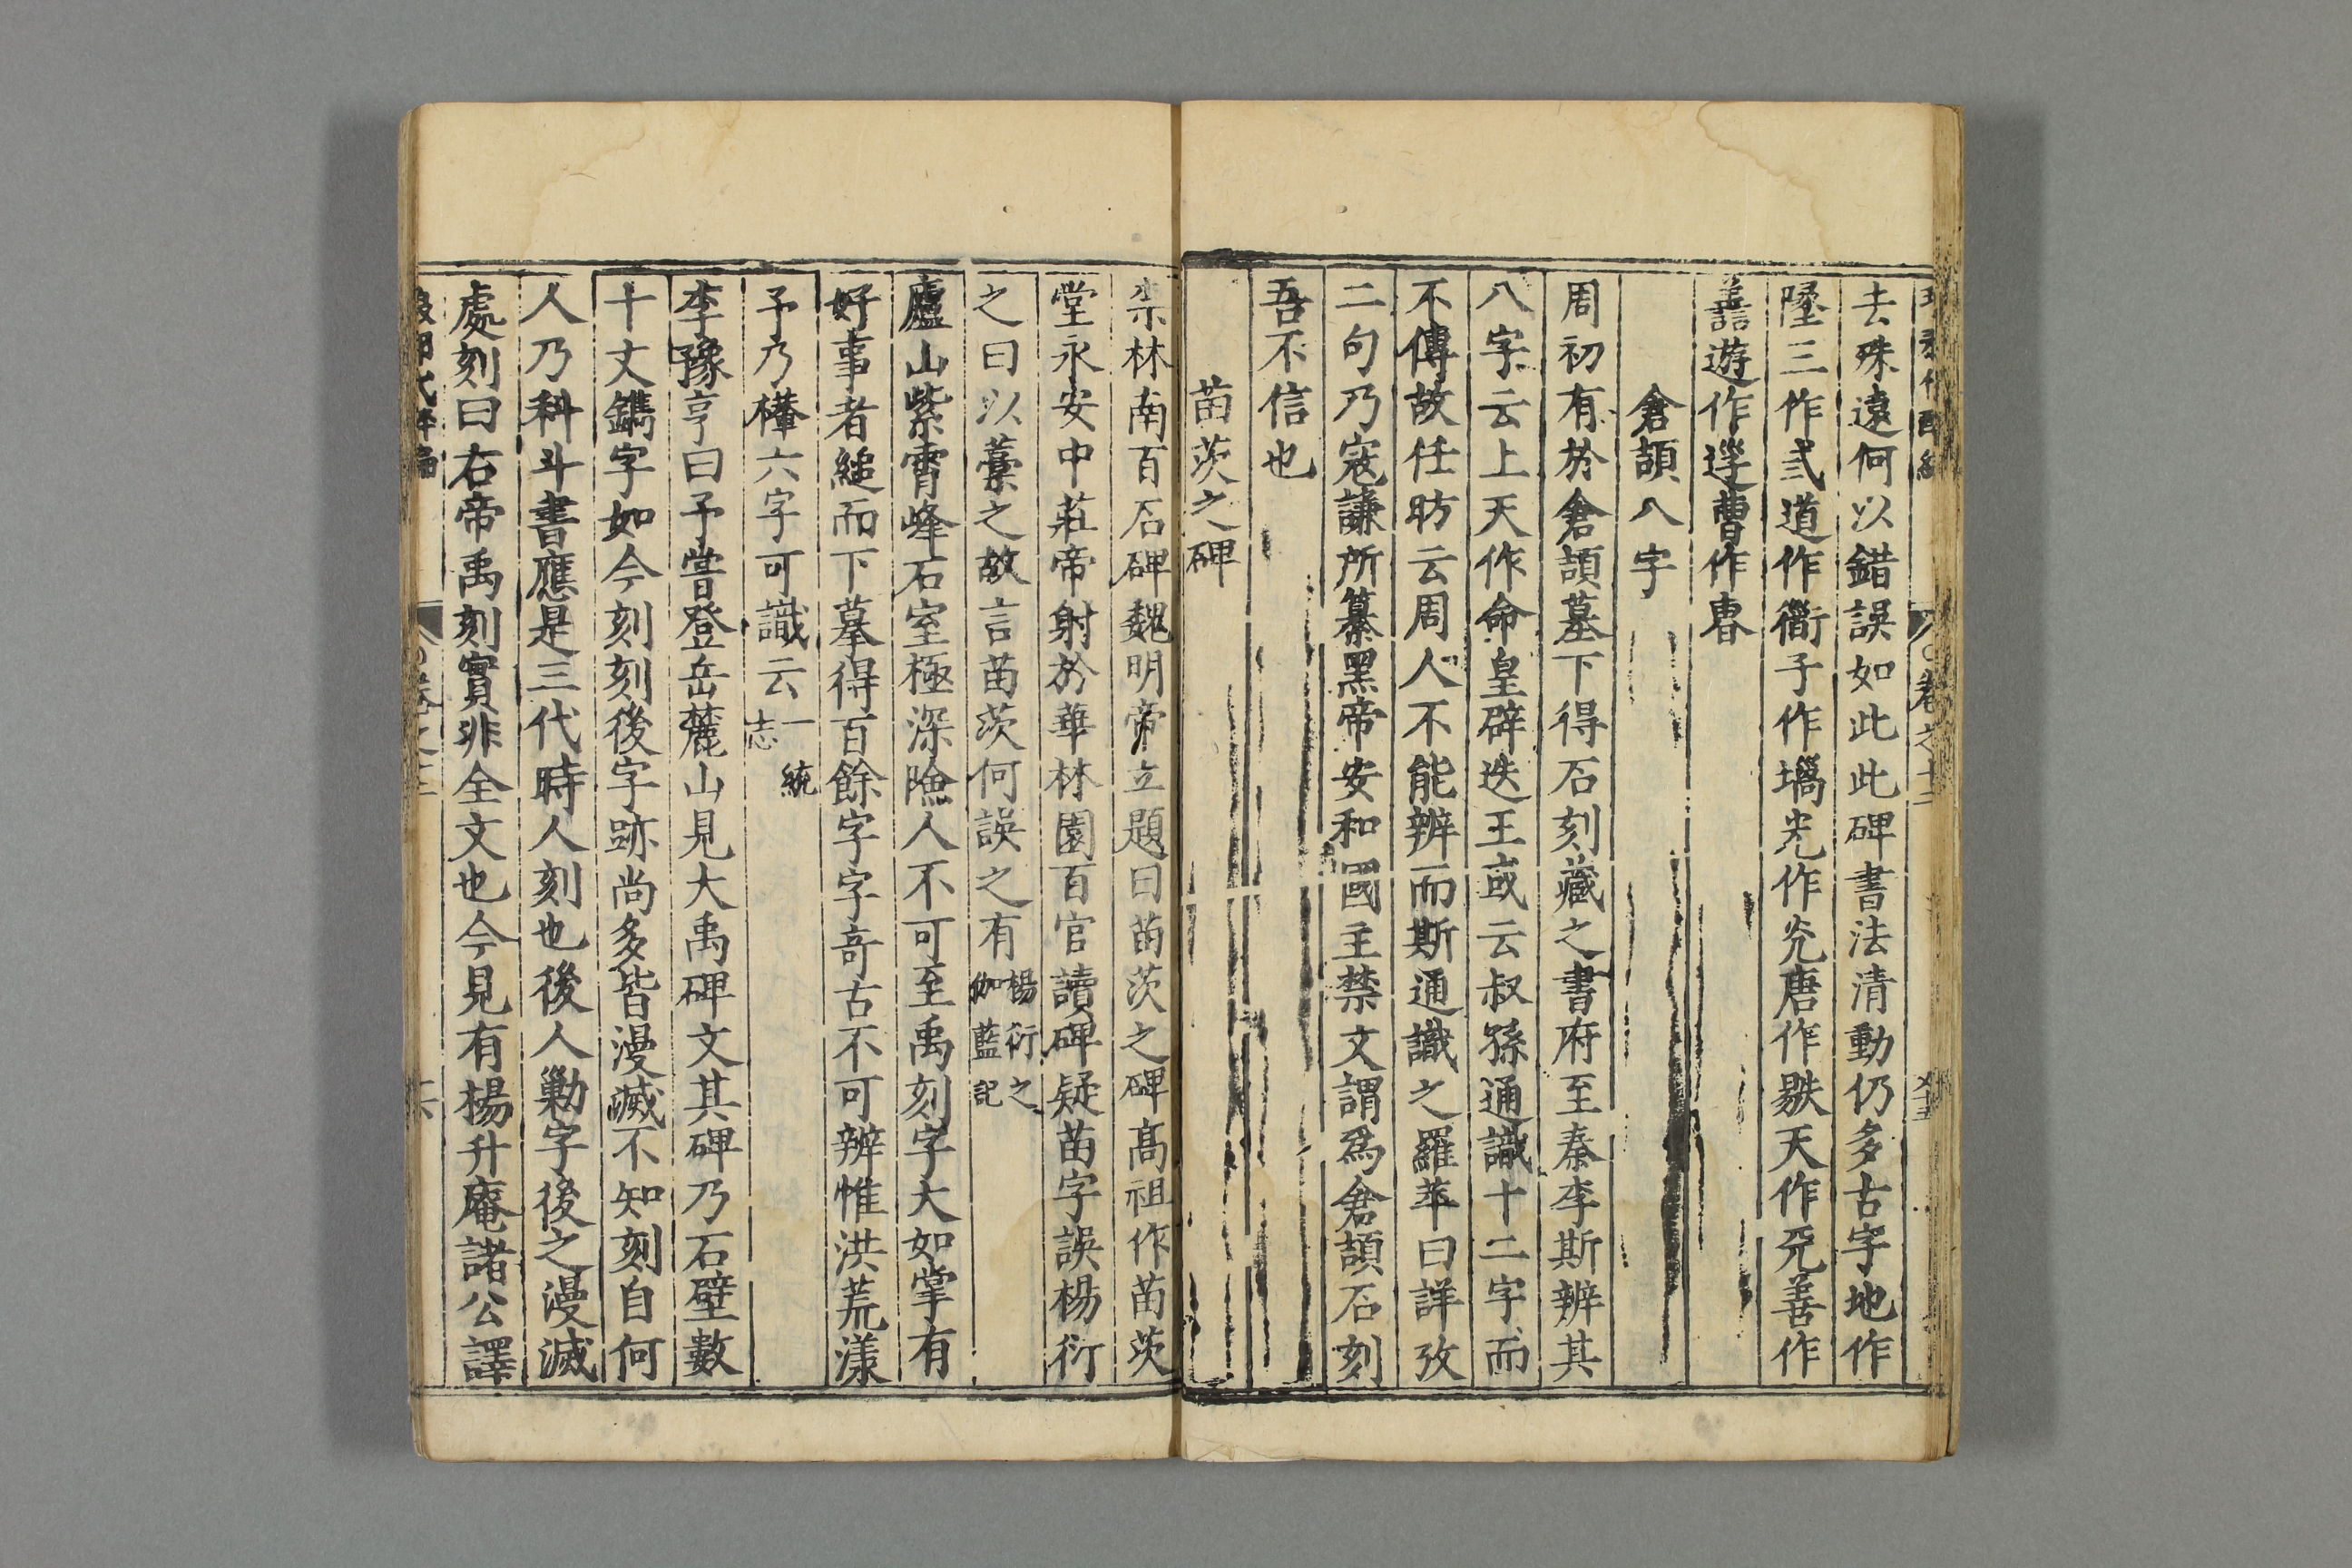 卷之十二
去殊遠何以錯誤如此此碑書法清動仍多古字地作
墬三作弎道作衟子作㘔光作灮唐作敭天作兲善作
譱遊作逕曹作㬳
倉頡八字
周初有於倉頡墓下得石刻藏之書府至秦李斯辨其
八字云上天作命皇辟迭王或云叔孫通識十二字而
不傳故任昉云周人不能辨而斯通識之羅苹曰詳攷
二句乃寇謙所纂黑帝安和國主禁文謂爲倉頡石刻
吾不信也
苗茨之碑
柰林南百石碑魏明帝立題曰苗茨之碑高祖作苗茨
堂永安中莊帝射於華林園百官讀碑疑苗字誤楊衒
之曰以藁之故言苗茨何誤之有楊衒之伽藍記
廬山紫霄峰石室極深險人不可至禹刻字大如掌有
好事者縋而下摹得百餘字字奇古不可辨惟洪荒漾
予乃櫸六字可識云一統志
李豫亨曰予嘗登岳麓山見大禹碑文其碑乃石壁數
十丈鐫字如今刻刻後字跡尚多皆漫滅不知刻自何
人乃科斗書應是三代時人刻也後人勦字後之漫滅
處刻曰右帝禹刻實非全文也今見有楊升庵諸公譯